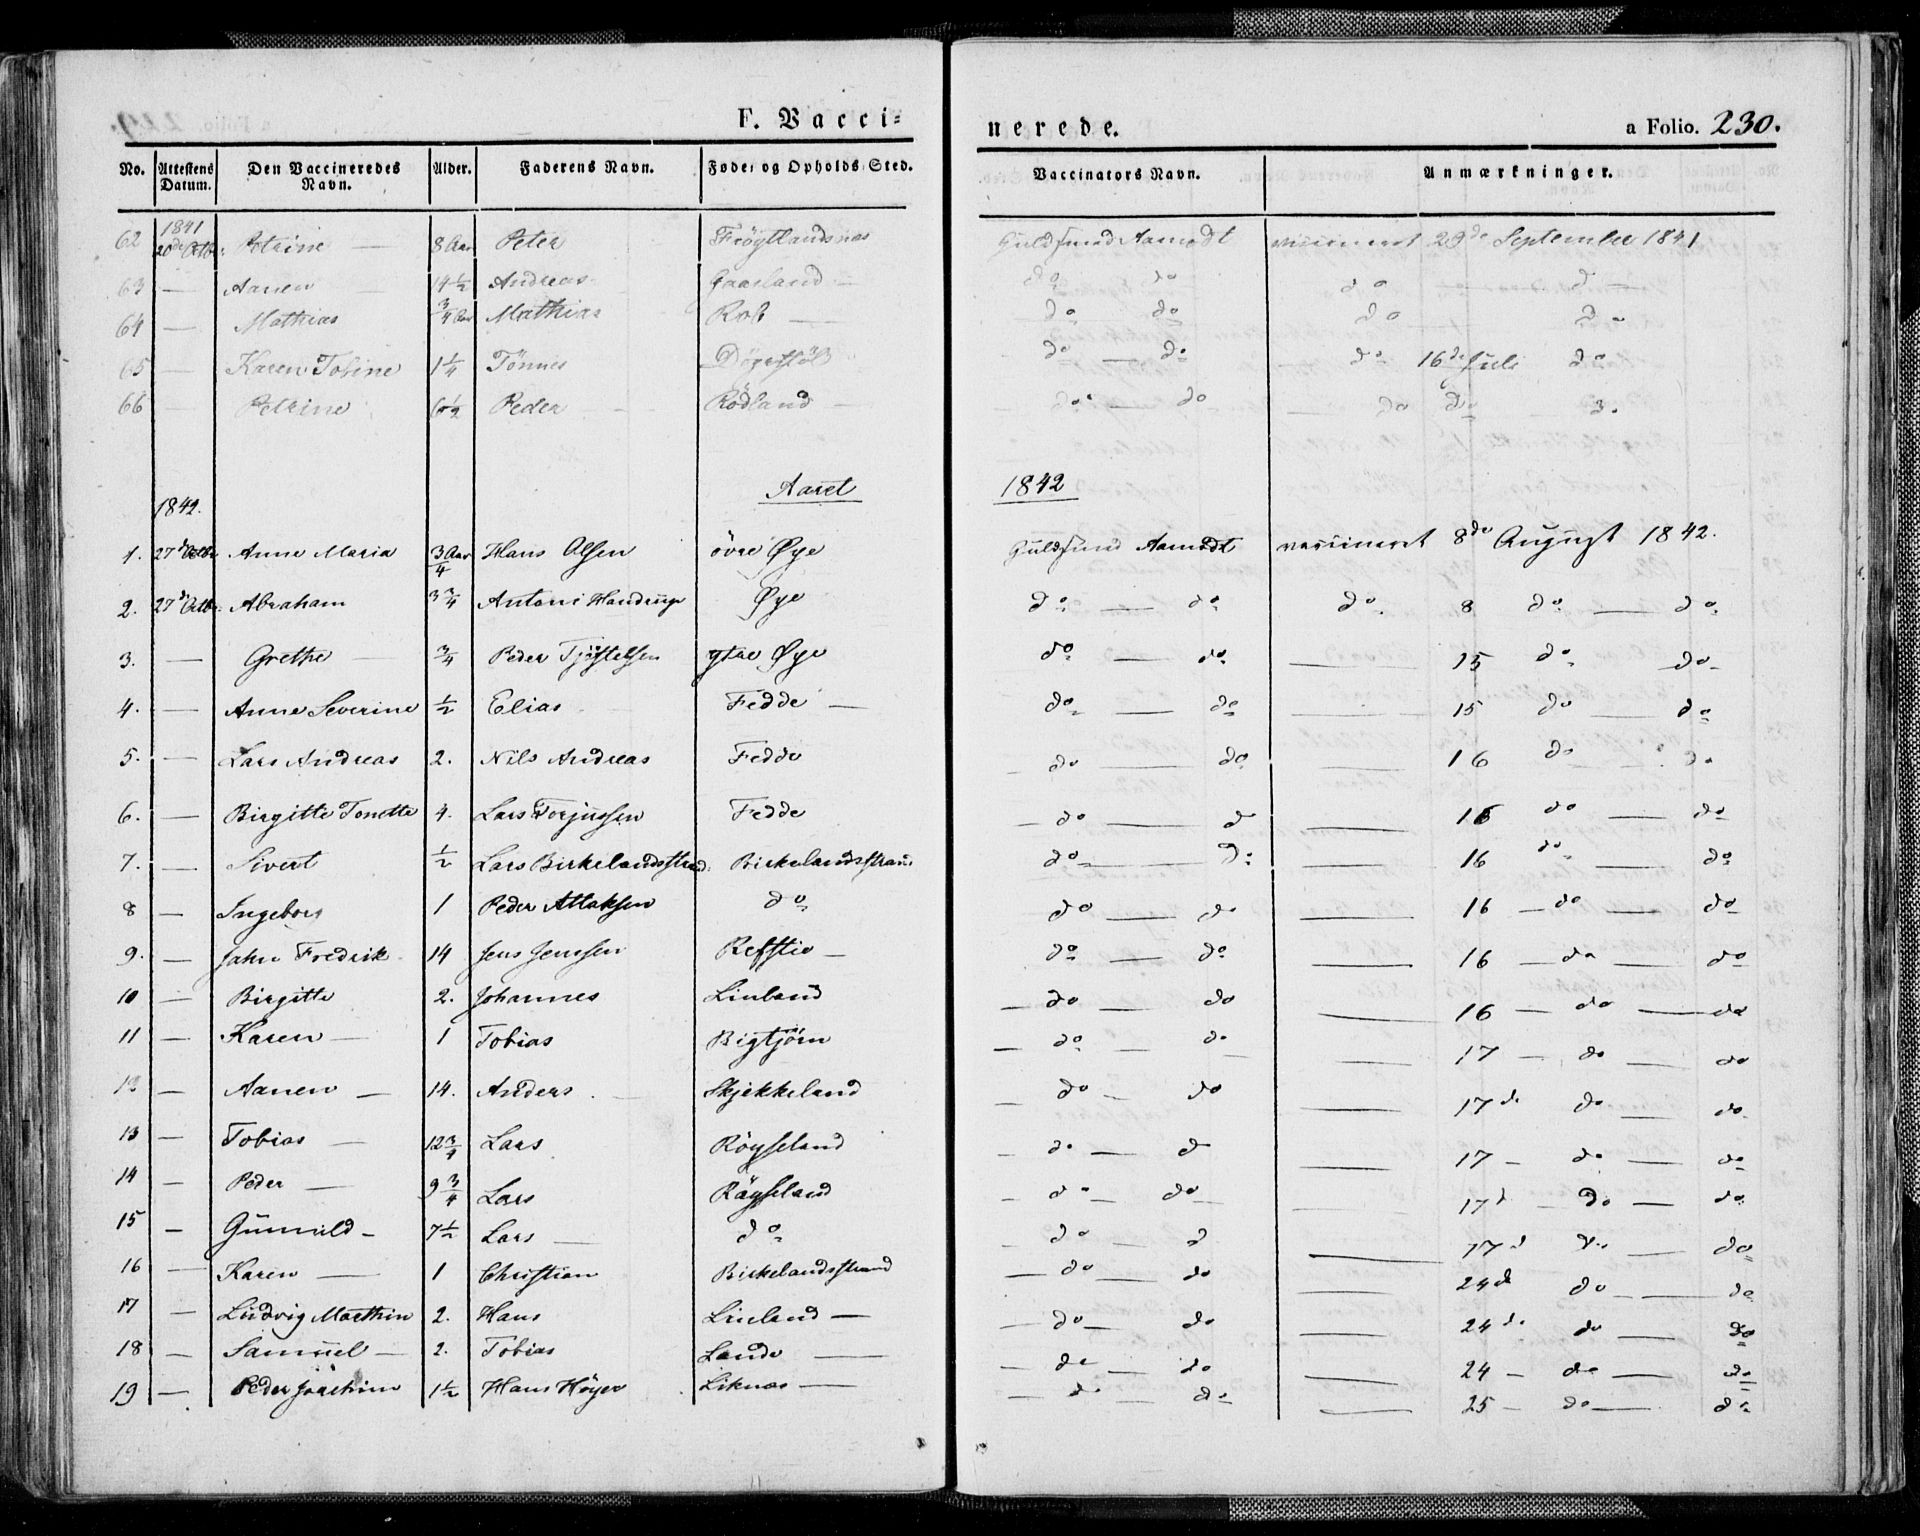 F. Vacci=
nerede.
a Folio. 230.
No. Attestens Datum. Den Vaccineredes Navn. Alder. Faderens Navn. Føde= og Opholds=Sted. Vaccinators Navn. Anmærkninger.
1841
62 20de Octbr. Petrine — 8 Aar Peter Fröytlandsnæs Guldsmed Aamodt vaccineret 29de September 1841
63 — Aanen 14½ Andreas Gaasland — do do do d
64 — Mathias ¾ Aar Mathias — do do do do
65 — Karen Tobine 1¼ Tönnes do — do do 16de Juli do
66 — Petrine Peder Rödland — do — do — do do
Aaret 1842
1842.
1. 27de Octbr Anne Maria ¾ Aar Hans Olsen övre Øye Guldsmed Aamodt vaccineret 8de August 1842.
2. 27de Octbr. Abraham 3¾ Antoni Handrup Øye do — do do. 8 do — do
3. — Grethe — ¾ Peder Tjöstelsen ytre Øye do — do — 15 do — do
4. — Anne Severine ½ Elias Fedde — do — do — 15 do — do
5. — Lars Andreas 2. Nils Andreas Fedde — do — do — 16 do — do
6. — Birgitte Tonette 4. Lars Torjussen Fedde — do — d — 16 do — do
7. — Sivert ½ Lars Birkelandsstrand. Birkelandsstrand do — do — 16 do — do
8 — Ingeborg 1 Peder Atlaksen do do — do — 16 — do — do
9. — Jahn Fredrik 14 Jens Jenssen Refstie — do — do — 16 — do — do
10 — Birgitte 2. Johannes Linland — do — do — 16 — do — do
11 — Karen — 1 Tobias Bigtjörn — do — do — 17 — do — do
12 — Aanen — 14. Anders Skjekkeland — do — do — 17d do — do
13 — Tobias — 12¾ Lars Röyseland — do — d — 17 — do — do
14 — Peder — 9¾ Lars Röyseland — do — do — 17d do — do
15 — Gunvald — 7½ Lars — do — do — d — 17d do — do
16 — Karen — 1 Christian Birkelandsstrand — do — do — 24d do — do
17 — Ludvig Marthin 2. Hans Linland — — do — do — 24de do — do
18 — Samuel — 2. Tobias Lande — — do — do — 24 — do — do
19 — Peder Joachim 1½ Hans Höyer Liknæs — — do — do — 25 — do — do